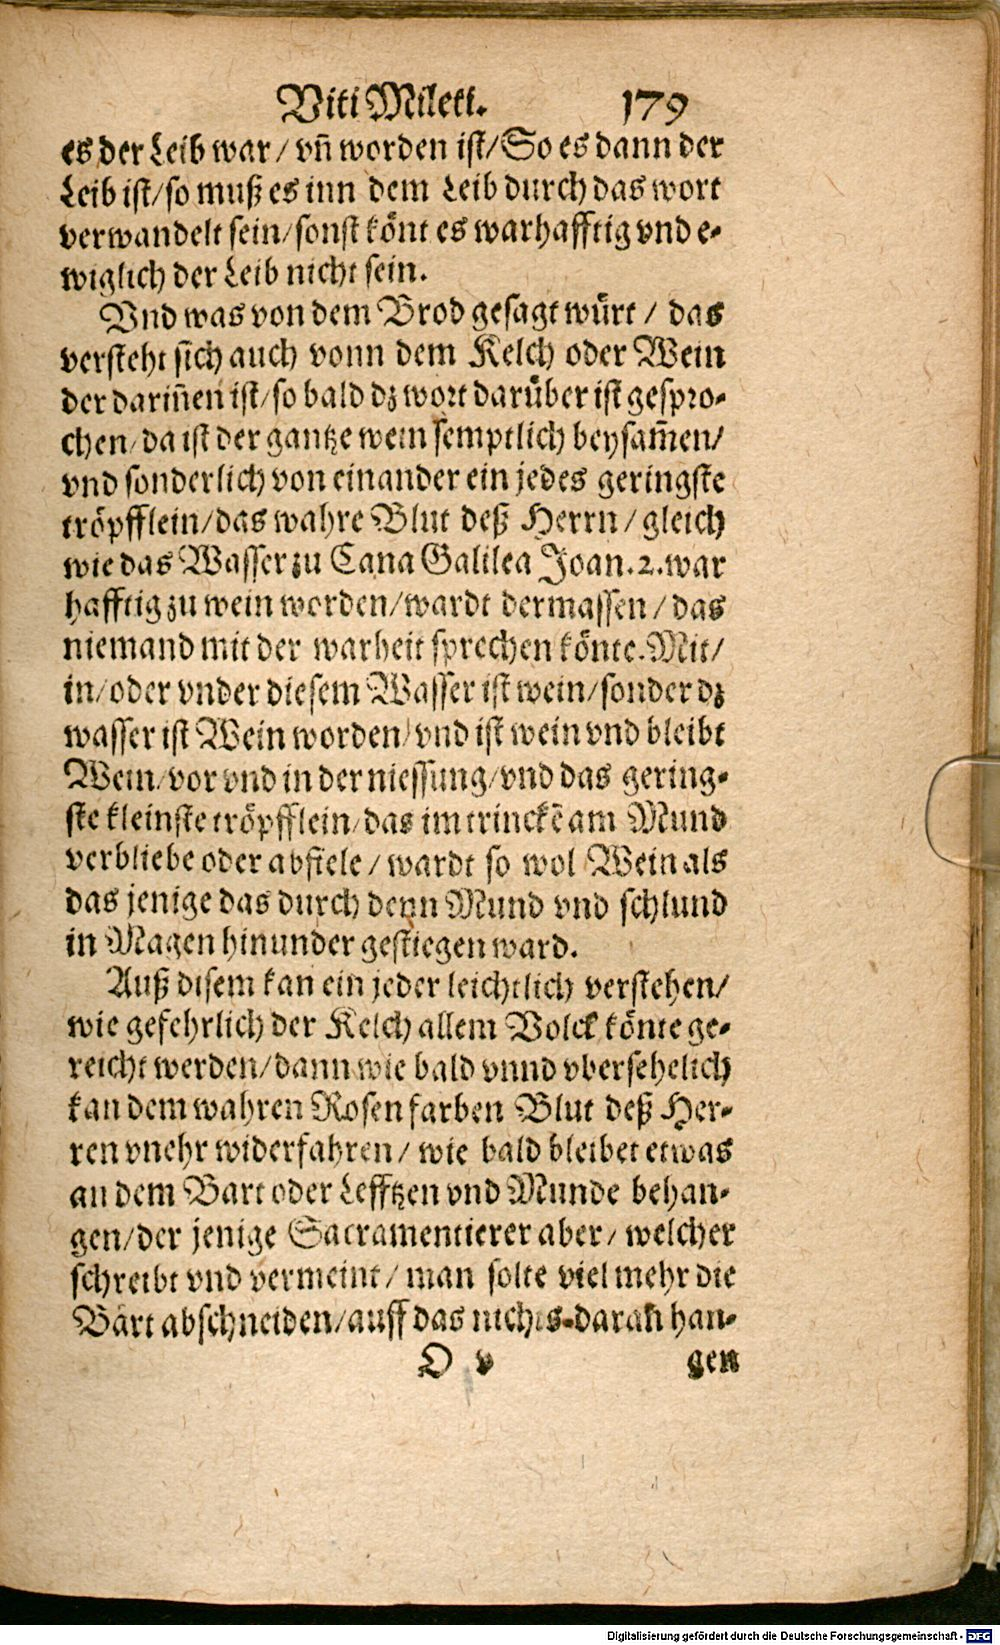 Viti Mileti. 179
es der Leib war / vñ worden ist / So es dann der
Leib ist / so muß es inn dem Leib durch das wort
verwandelt sein / sonst könt es warhafftig vnd e-
wiglich der Leib nicht sein.
Vnd was von dem Brod gesagt würt / das
versteht sich auch vonn dem Kelch oder Wein
der dariñen ist / so bald dz wort darüber ist gespro-
chen / da ist der gantze wein semptlich beysam̃en /
vnd sonderlich von einander ein jedes geringste
tröpfflein / das wahre Blut deß Herrn / gleich
wie das Wasser zu Cana Galilea Joan. 2. war
hafftig zu wein worden / wardt dermassen / das
niemand mit der warheit sprechen könte. Mit /
in / oder vnder diesem Wasser ist wein / sonder dz
wasser ist Wein worden / vnd ist wein vnd bleibt
Wein / vor vnd in der niessung / vnd das gering-
ste kleinste tröpfflein / das im trinckē am Mund
verbliebe oder abfiele / wardt so wol Wein als
das jenige das durch denn Mund vnd schlund
in Magen hinunder gestiegen ward.
Auß disem kan ein jeder leichtlich verstehen /
wie gefehrlich der Kelch allem Volck könte ge-
reicht werden / dann wie bald vnnd vbersehelich
kan dem wahren Rosenfarben Blut deß Her-
ren vnehr widerfahren / wie bald bleibet etwas
an dem Bart oder Lefftzen vnd Munde behan-
gen / der jenige Sacramentierer aber / welcher
schreibt vnd vermeint / man solte viel mehr die
Bärt abschneiden / auff das nichts daran han-
O v gen
Digitalisierung gefördert durch die Deutsche Forschungsgemeinschaft - DFG